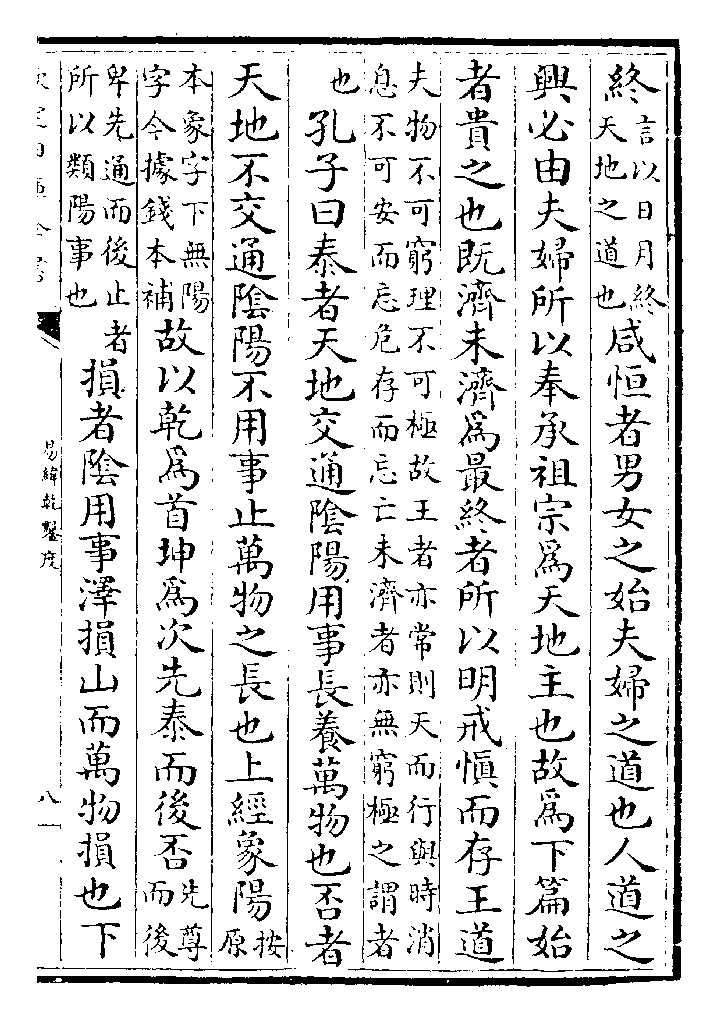 終言以日月終天地之道也咸恒者男女之始夫婦之道也人道之
興必由夫婦所以奉承祖宗爲天地主也故爲下篇始
者貴之也既濟未濟爲最終者所以明戒慎而存王道
夫物不可窮理不可極故王者亦常則天而行與時消
息不可安而忘危存而忘亡未濟者亦無窮極之謂者
也孔子曰泰者天地交通陰陽用事長養萬物也否者
天地不交通陰陽不用事止萬物之長也上經象陽按原
本象字下無陽字今據錢本補故以乾爲首坤爲次先泰而後否先尊而後
卑先通而後止者所以類陽事也損者陰用事澤損山而萬物損也下
易緯乾鑿度
八